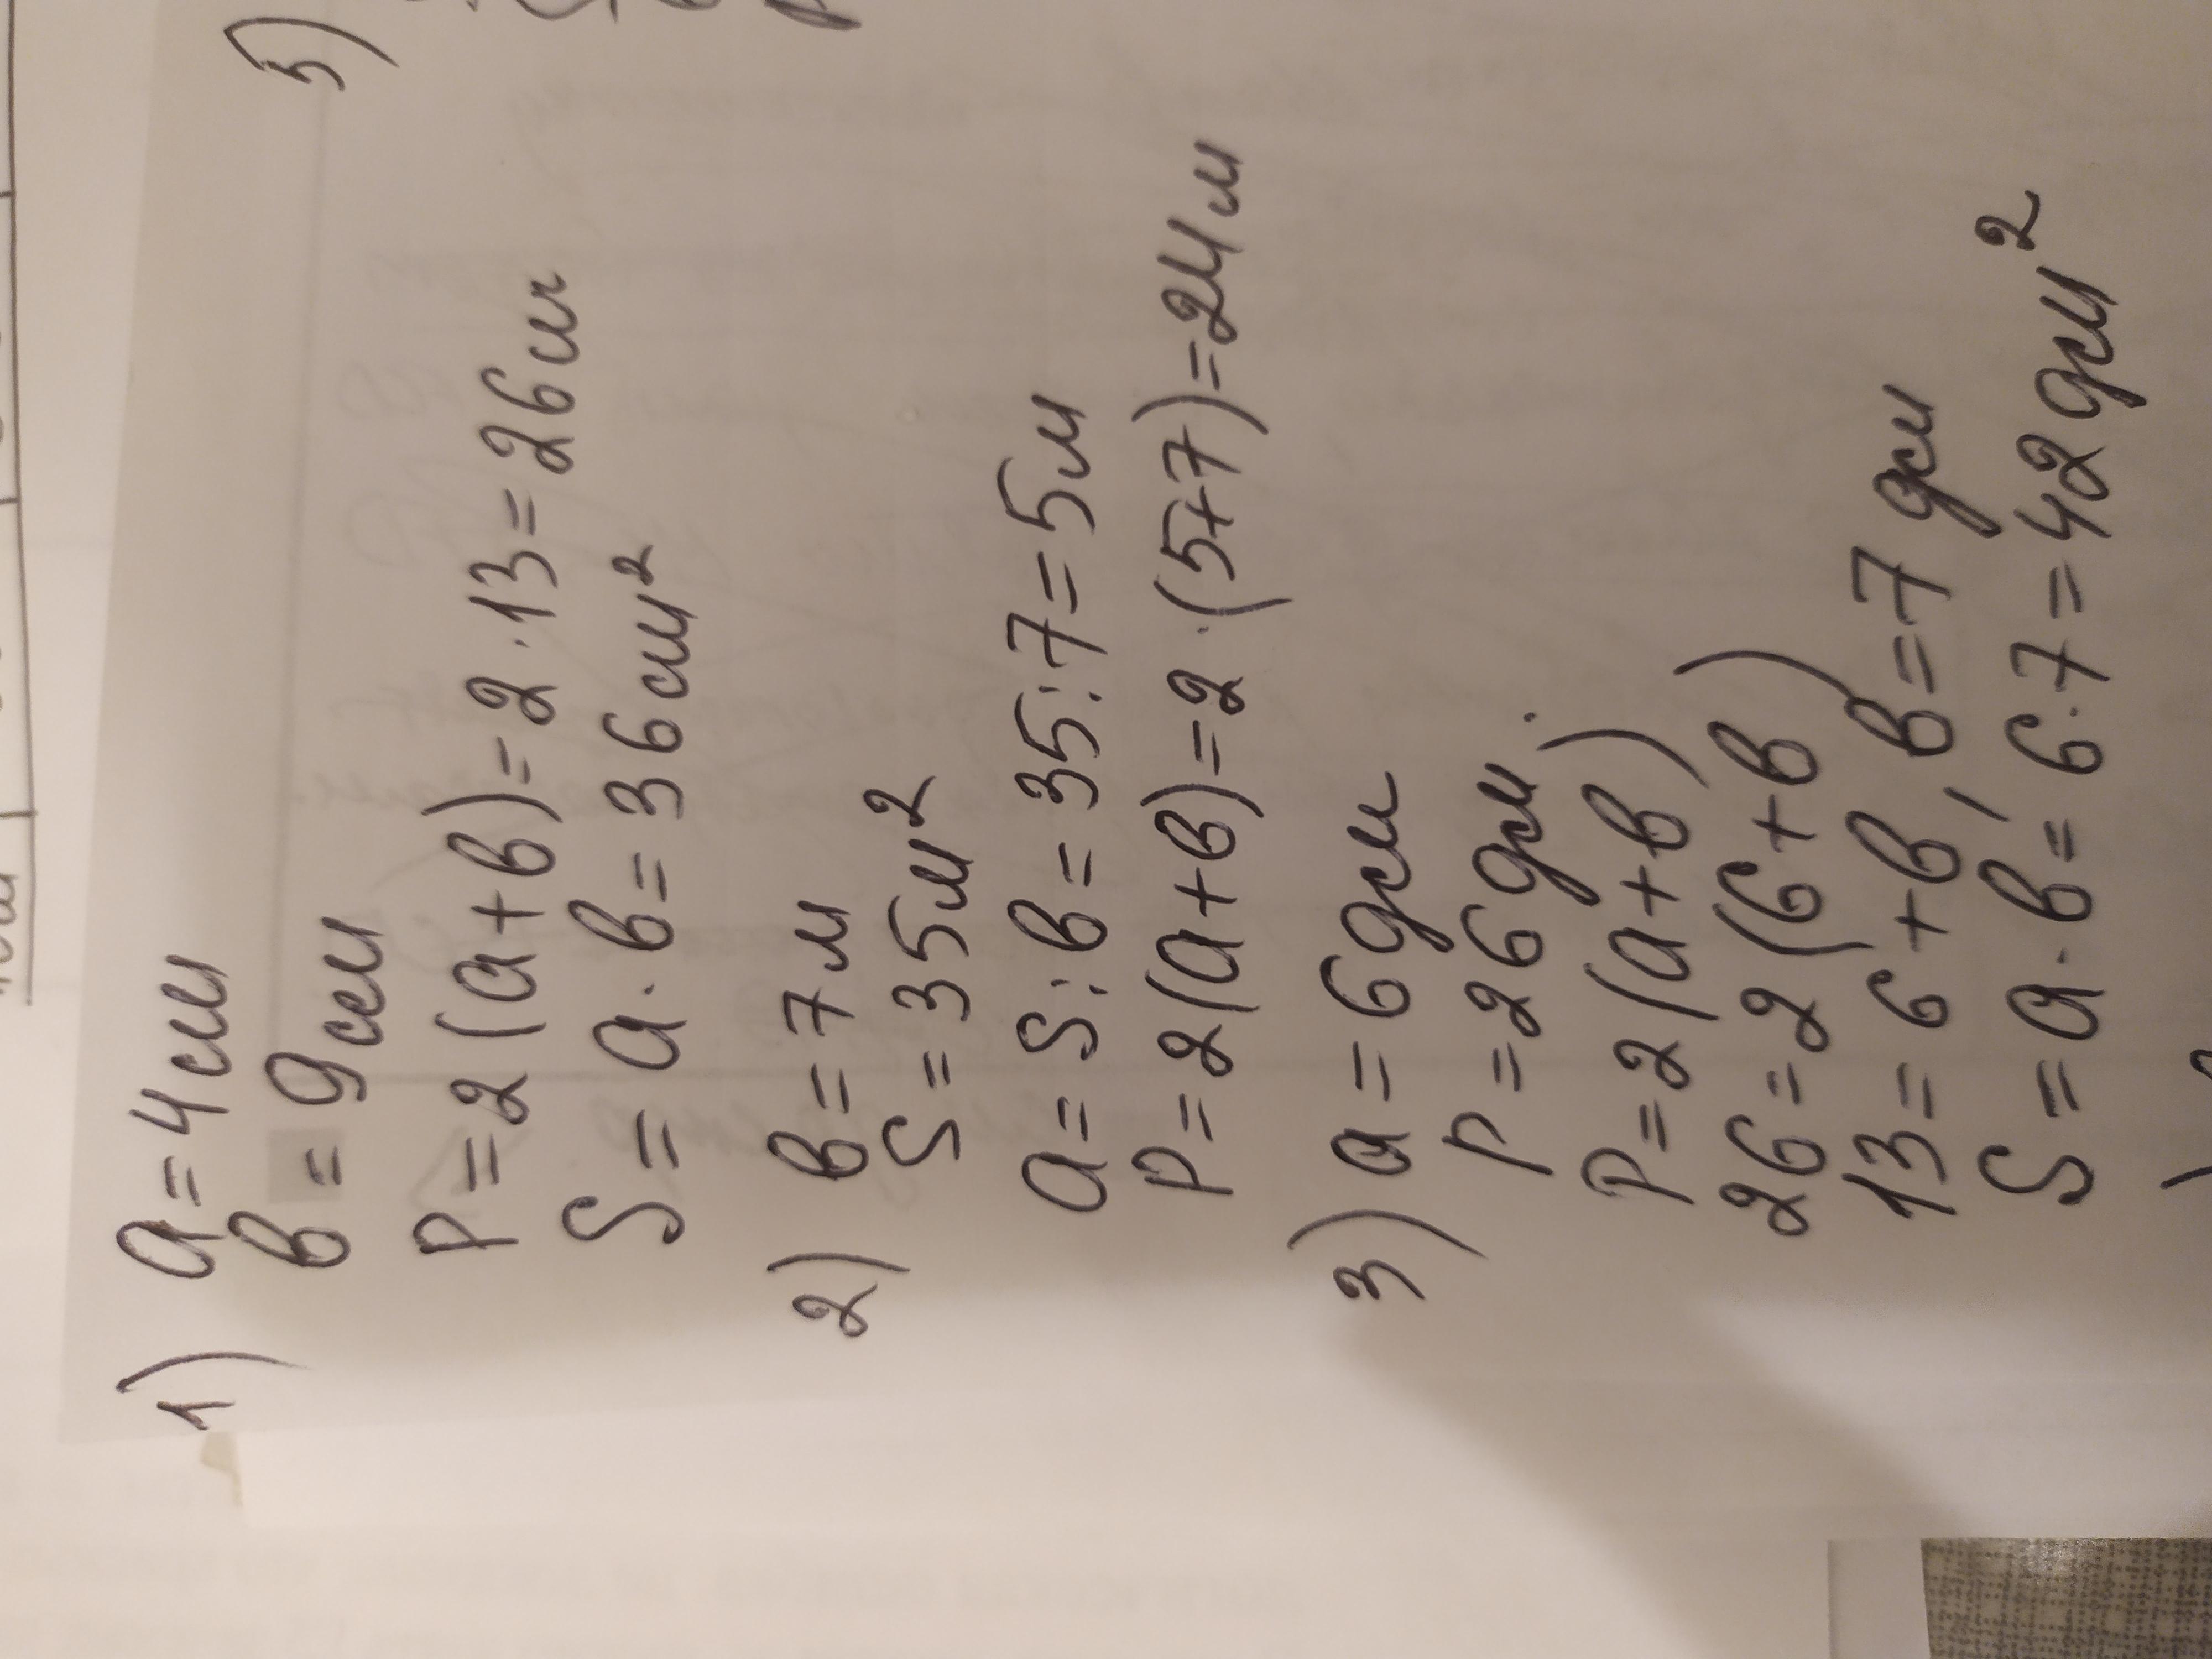 1) a = 4 см
в = 9 см
P = 2 (a + в) = 2 · 13 = 26 см
S = a · в = 36 см²
2) в = 7 м
S = 35 м²
a = S : в = 35 : 7 = 5 м
P = 2 (a + в) = 2 · (5 + 7) = 24 м
3) a = 6 дм
P = 26 дм
P = 2 (a + в)
26 = 2 (6 + в)
13 = 6 + в, в = 7 дм
S = a · в = 6 · 7 = 42 дм²
5)